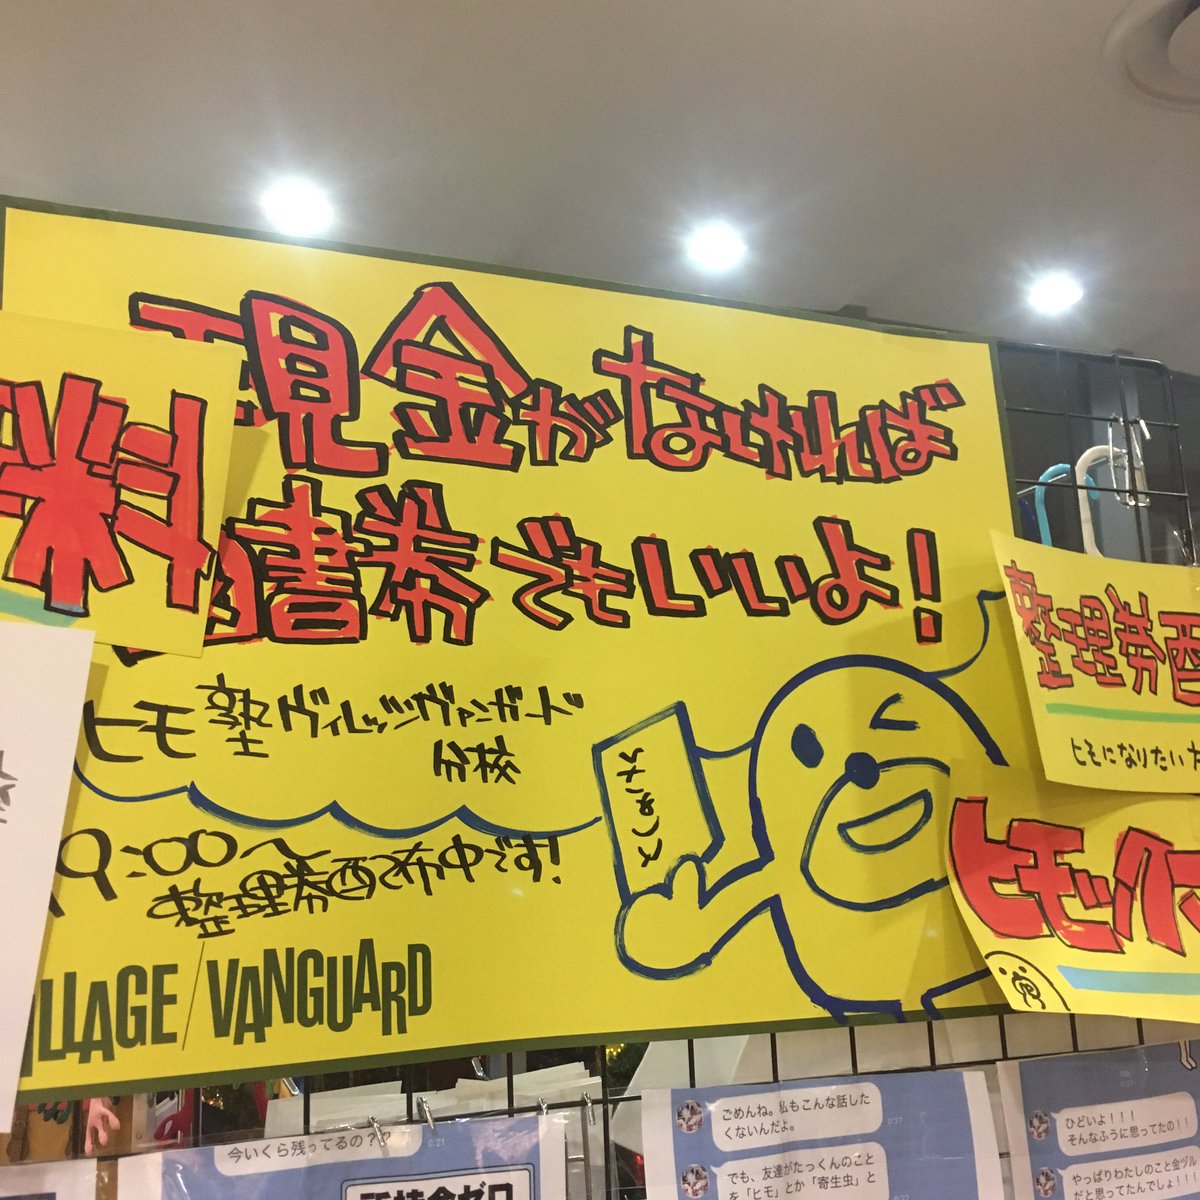 現金がなければ
図書券でもいいよ!
料
ヒモ塾ヴィレッジヴァンガード
分校
19:00〜
整理券配布中です!
VILLAGE/VANGUARD
整理券配
ヒモになりたい方
ヒモックマ
今いくら残ってるの??
0:21
所持金ゼロ
ごめんね。私もこんな話した
くないんだよ。
0:27
でも、友達がたっくんのこと
を「ヒモ」とか「寄生虫」と
ひどいよ!!!
そんなふうに思ってたの!!
やっぱりわたしのこと金ヅル
だと思ってたんでしょ!